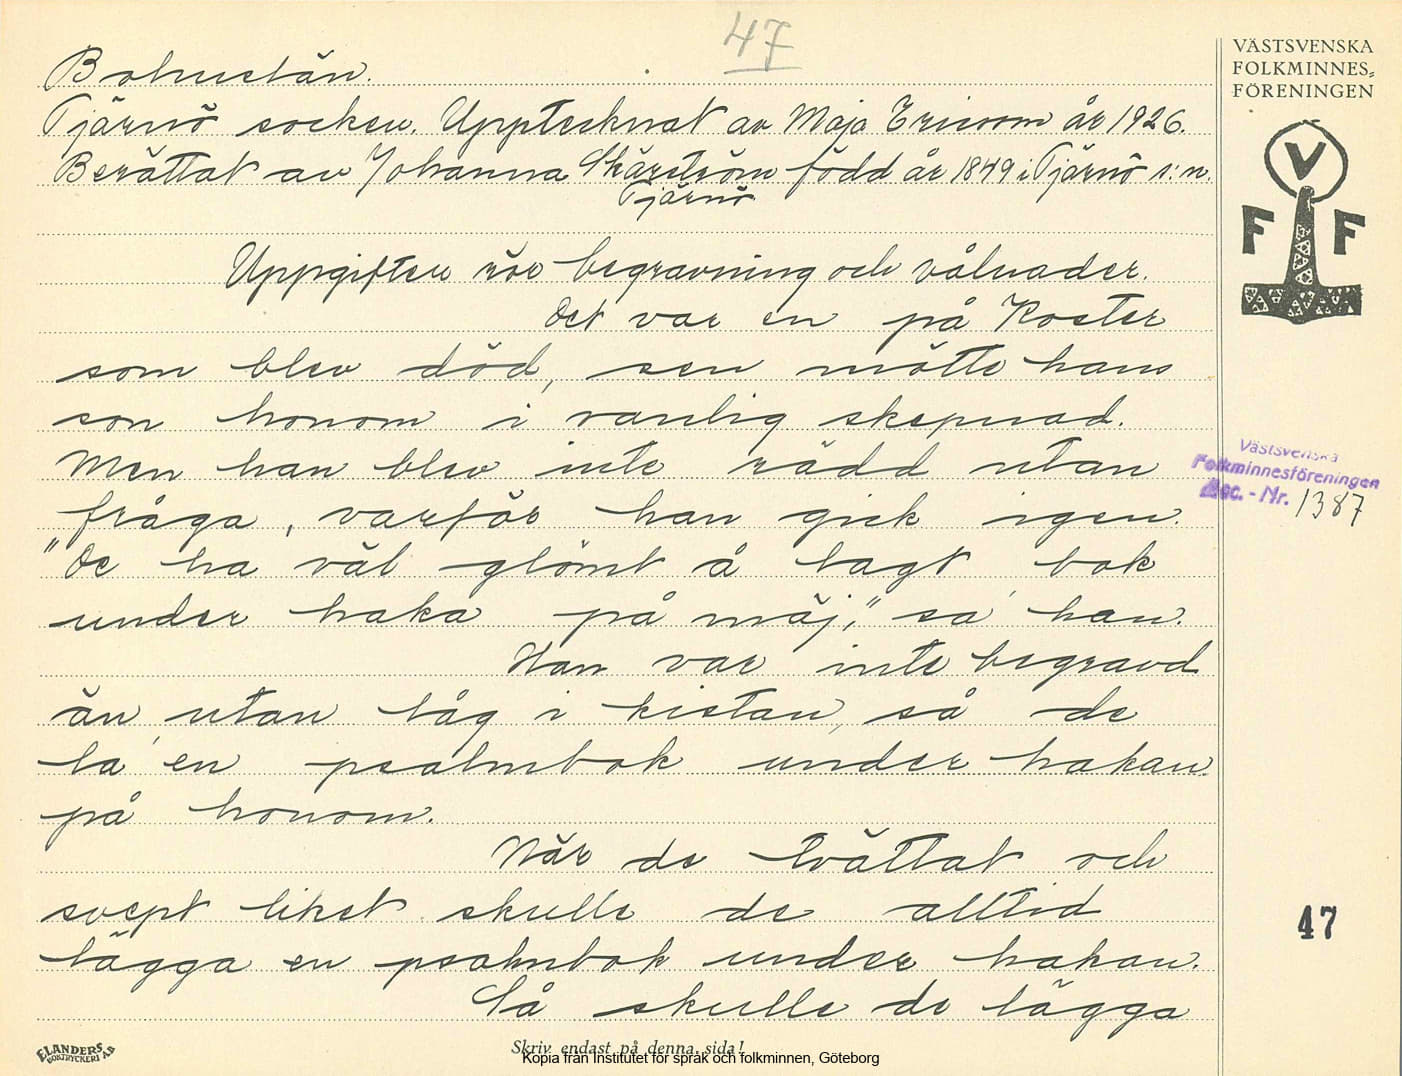 47
Bohuslän.
Tjärnö socken. Upptecknat av Maja Ericson år 1926.
Berättat av Johanna Skärström född år 1849 i Tjärnö s:n.
Tjärnö
Uppgifter rör begravning och vålnader.
Det var en på Koster
som blev död, sen mötte hans
son honom i vanlig skepnad.
Men han blev inte rädd utan
fråga, varför han gick igen.
"De ha väl glömt å lagt bok
under haka på mäj," sa' han.
Han var inte begravd
än, utan låg i kistan, så de
la' en psalmbok under hakan
på honom.
När de tvättat och
svept liket skulle de alltid
lägga en psalmbok under hakan.
Så skulle de lägga
VÄSTSVENSKA
FOLKMINNES-
FÖRENINGEN
V
F F
Västsvenska
Folkminnesföreningen
Acc. - Nr. 1387
47
ELANDERS
BOKTRYCKERI AB
Skriv endast på denna sida!
Kopia från Institutet för språk och folkminnen, Göteborg